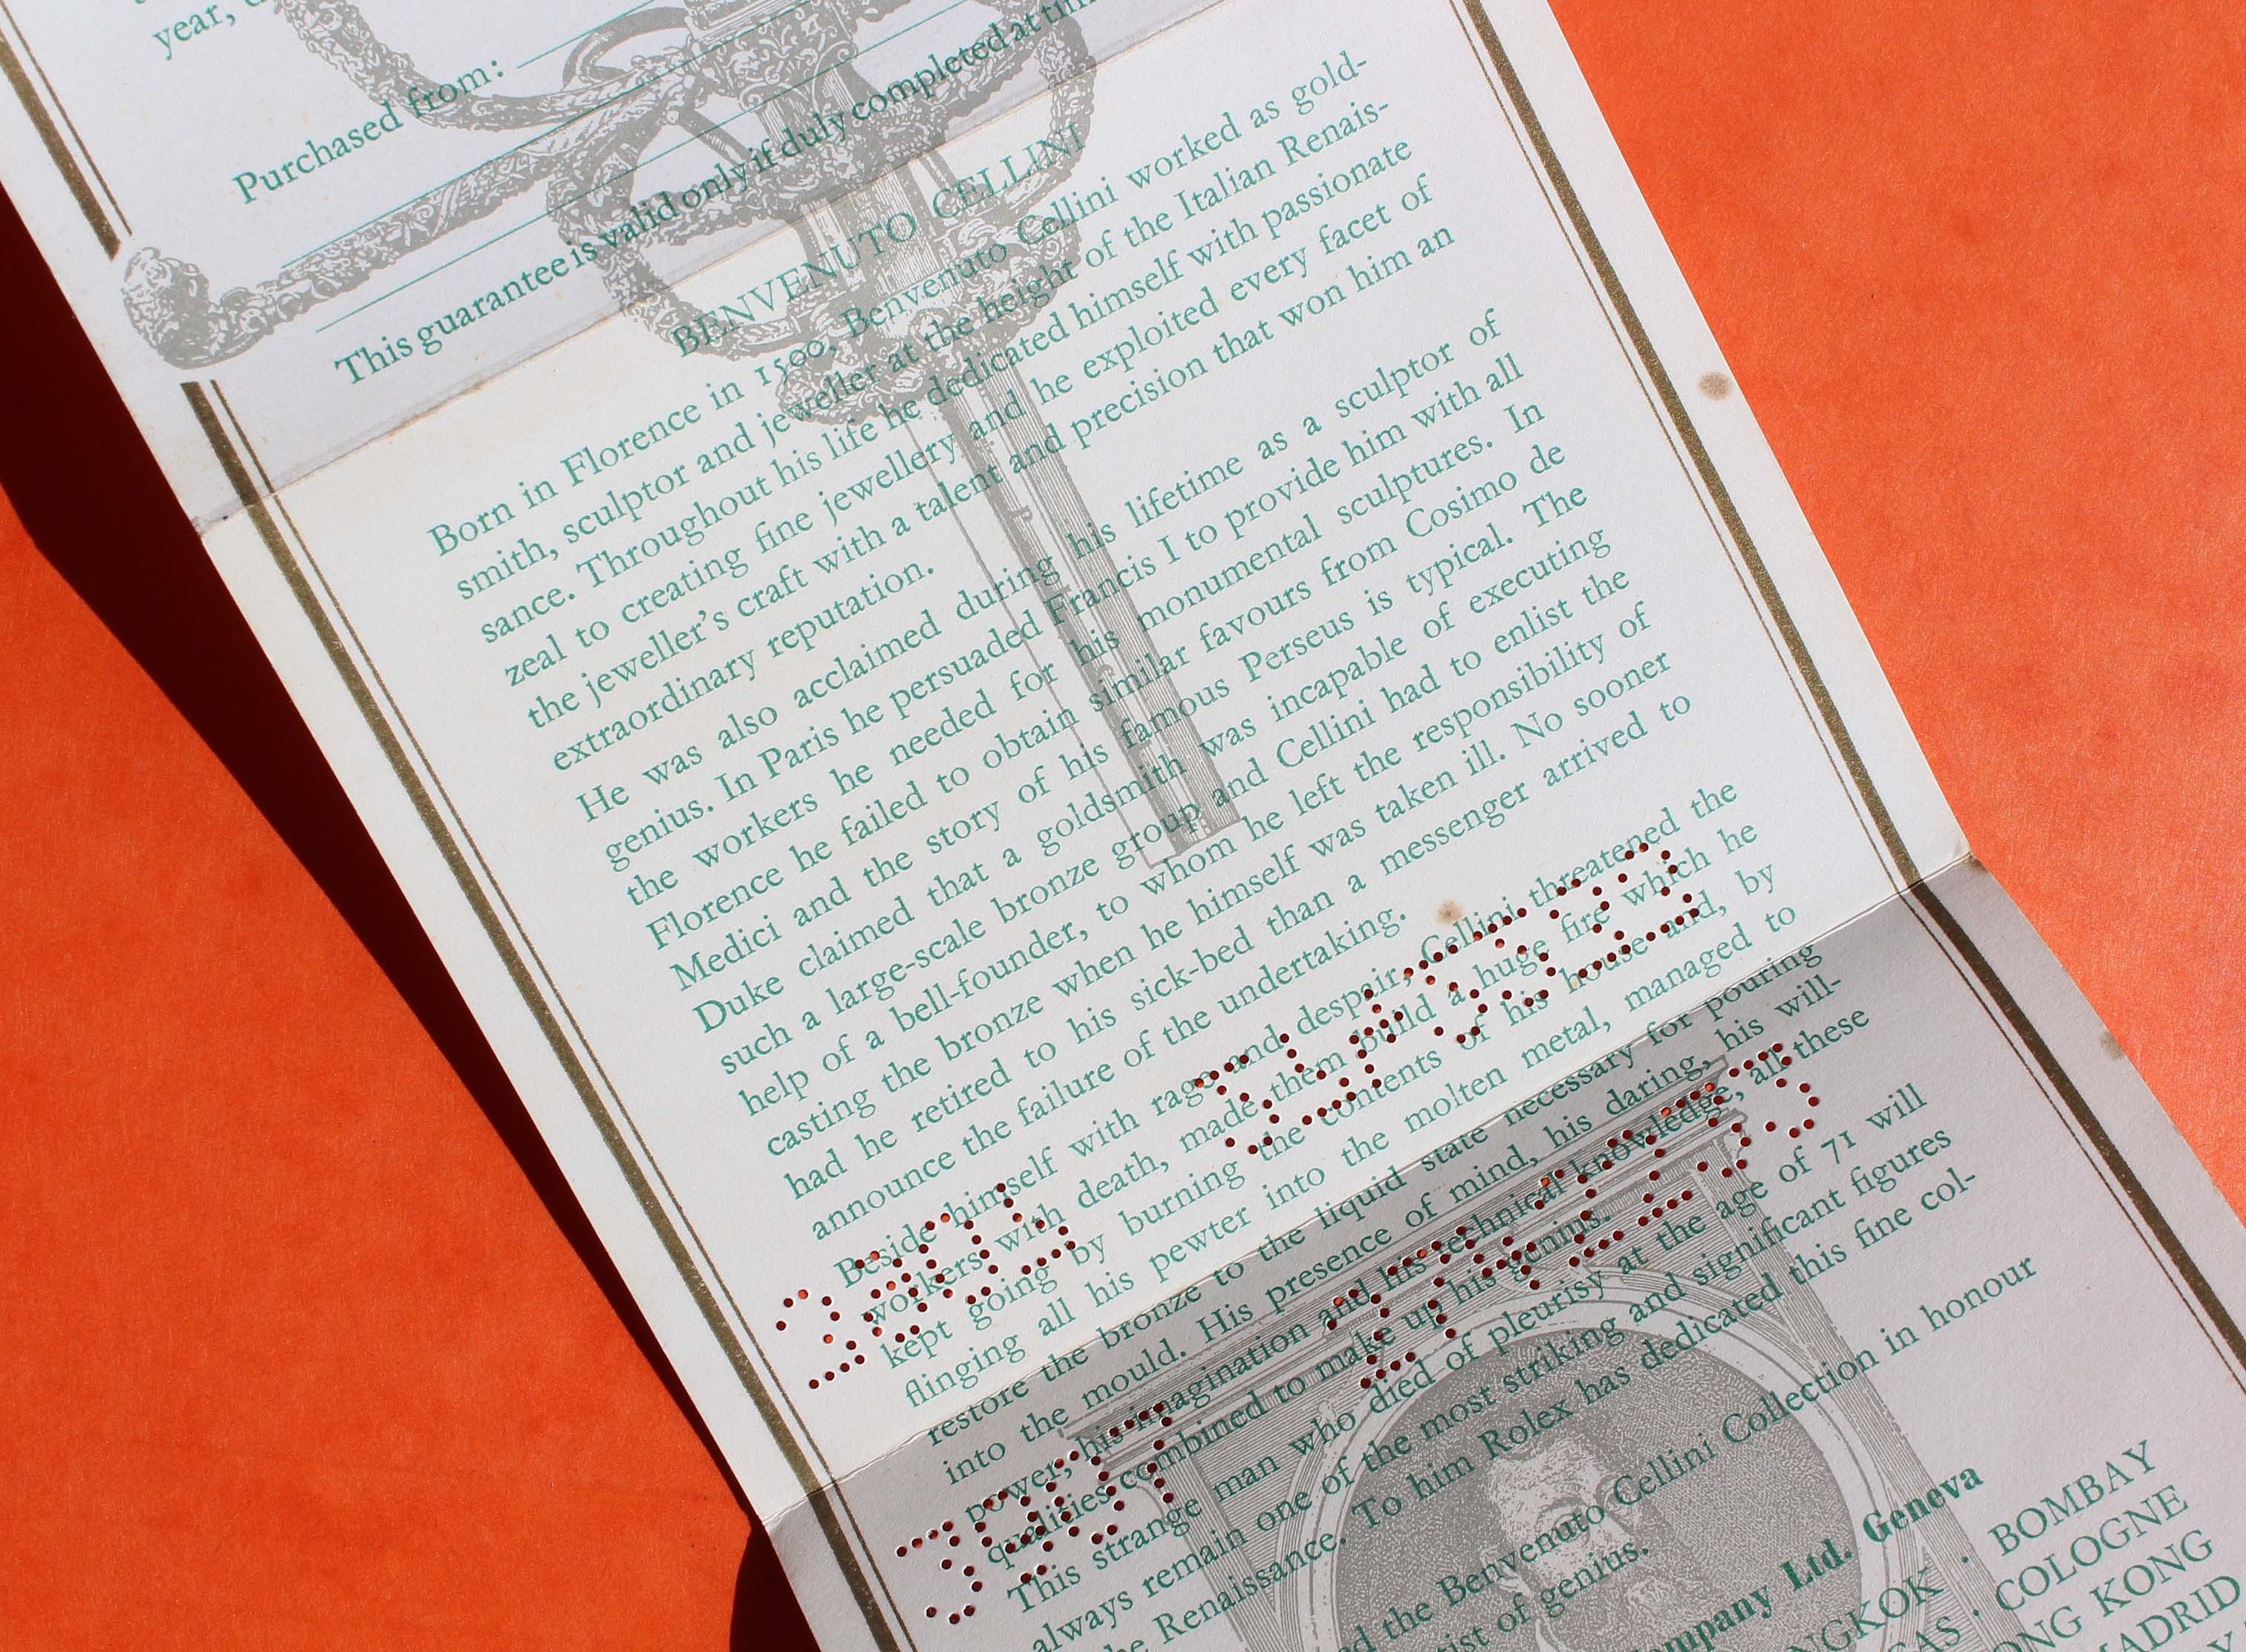 year,
Purchased from:
This guarantee is valid only if duly completed at
BENVENUTO CELLINI
Born in Florence in 1500, Benvenuto Cellini worked as gold-
smith, sculptor and jeweller at the height of the Italian Renais-
sance. Throughout his life he dedicated himself with passionate
zeal to creating fine jewellery and he exploited every facet of
the jeweller's craft with a talent and precision that won him an
extraordinary reputation.
He was also acclaimed during his lifetime as a sculptor of
genius. In Paris he persuaded Francis I to provide him with all
the workers he needed for his monumental sculptures. In
Florence he failed to obtain similar favours from Cosimo de
Medici and the story of his famous Perseus is typical. The
Duke claimed that a goldsmith was incapable of executing
such a large-scale bronze group and Cellini had to enlist the
help of a bell-founder, to whom he left the responsibility of
casting the bronze when he himself was taken ill. No sooner
had he retired to his sick-bed than a messenger arrived to
announce the failure of the undertaking.
Beside himself with rage and despair, Cellini threatened the
workers with death, made them build a huge fire which he
kept going by burning the contents of his house and, by
flinging all his pewter into the molten metal, managed to
restore the bronze to the liquid state necessary for pouring
into the mould. His presence of mind, his daring, his will-
power, his imagination and his technical knowledge, all these
qualities combined to make up his genius.
This strange man who died of pleurisy at the age of 71 will
always remain one of the most striking and significant figures
the Renaissance. To him Rolex has dedicated this fine col-
the Benvenuto Cellini Collection in honour
of genius.
Ltd. Geneva
BOMBAY
COLOGNE
KONG